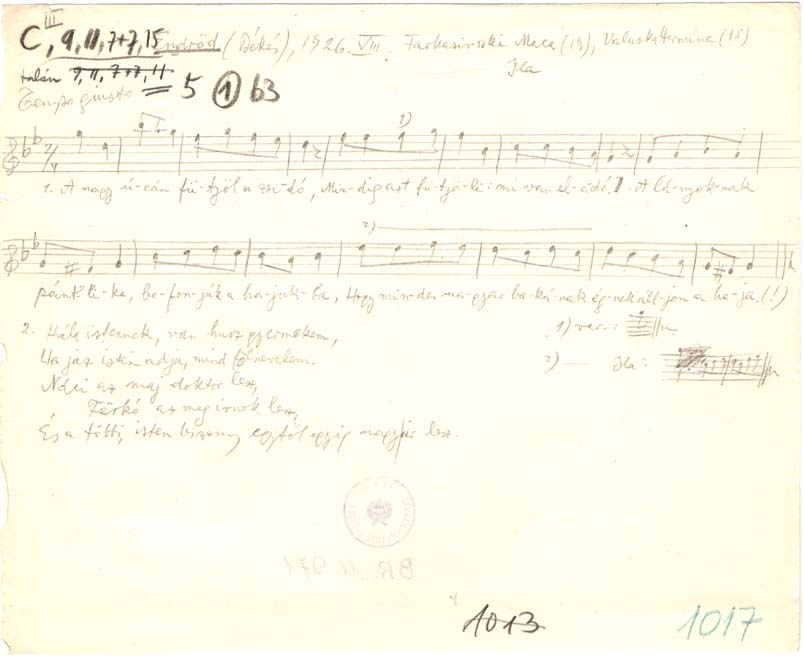 III
C, 9, 11, 7+7, 15 Endrőd (Békés), 1926. VIII. Farkasinszki Maca (19), Valuska Hermina (18)
talán 9, 11, 7+7, 11 Ila
Tempo giusto 5 1 b3
1)
2/4
1. A nagy ú-cán fü-työl a zsi-dó, Min-dig azt fü-työ-li: mi van el-adó. A lá-nyok-nak
2)
pánt-li-ka, be-fon-ják a ha-juk-ba, Hogy min-den ma-gyar ba-ká-nak ég-nek áll-jon a ha-ja. (!)
2. Hála istennek, van husz gyermekem, 1) var.:
Ha jaz isten adja, mind fölnevelem. 2) — Ila:
Náci az maj doktor lesz,
Ferkó az meg irnok lesz,
És a többi, isten bizony egytől egyig magyar lesz.
BR. 11 971
1013
1017